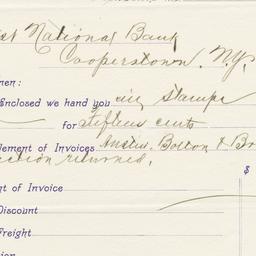 st National Bank
Cooperstown, N.Y.
men:
Enclosed we hand you in stamps
for fifteen cents
lement of Invoices Bolton & Br
ction returned.
$
nt of Invoice
Discount
Freight